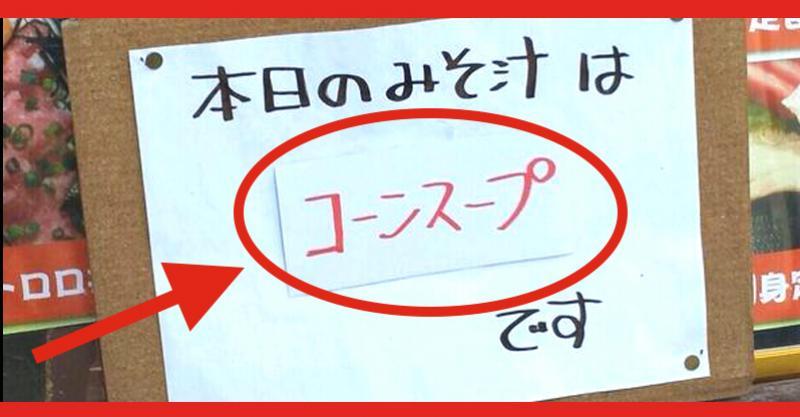 本日のみそ汁は
コーンスープ
です
トロロ
身